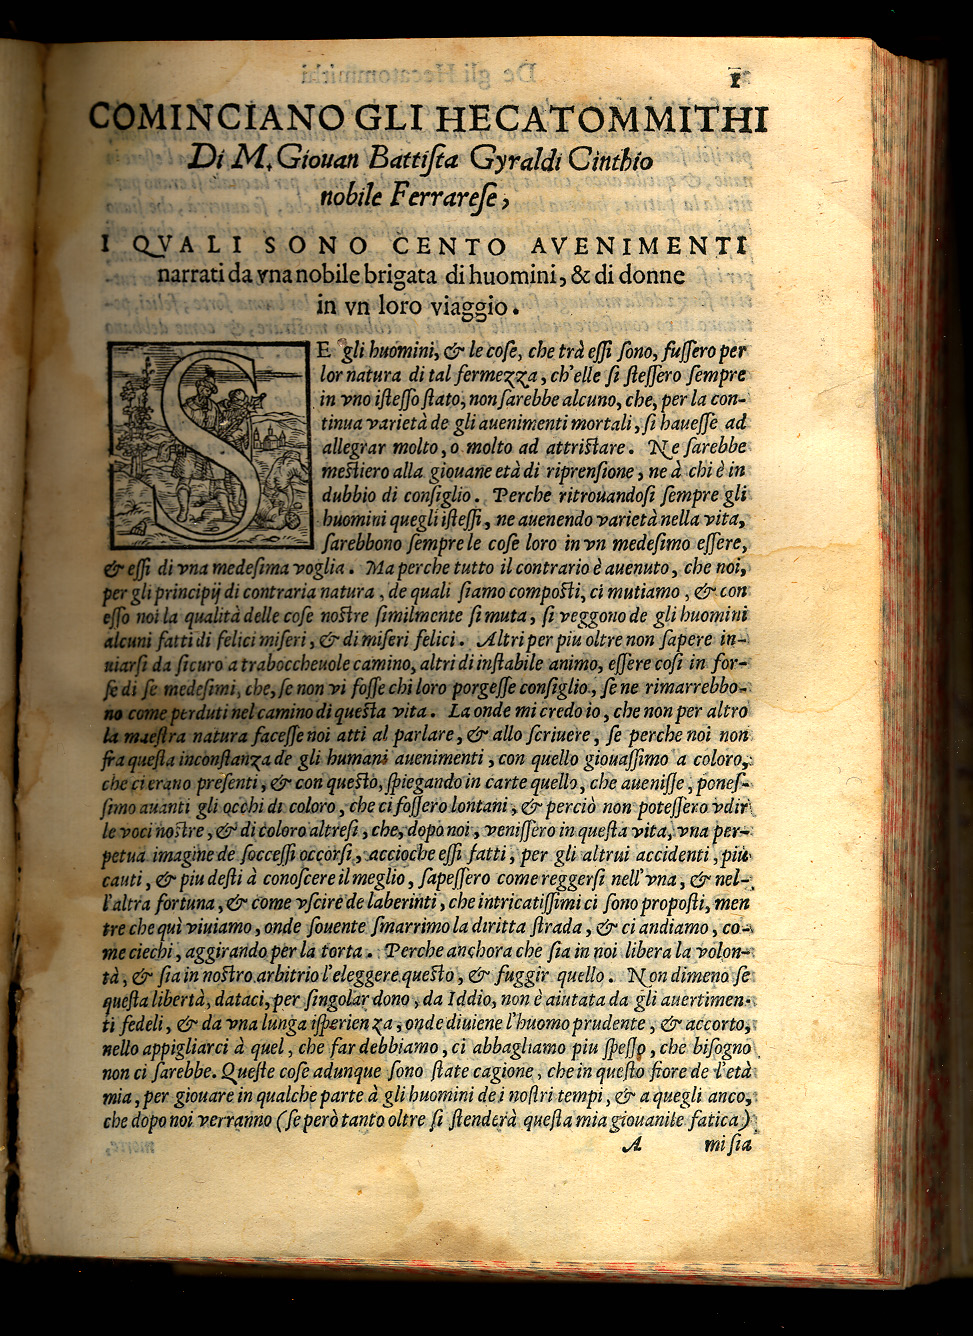 1
COMINCIANO GLI HECATOMMITHI
Di M. Giouan Battiſta Gyraldi Cinthio
nobile Ferrareſe,
I QVALI SONO CENTO AVENIMENTI
narrati da vna nobile brigata di huomini, & di donne
in vn loro viaggio.
SE gli huomini, & le coſe, che trà eſſi ſono, fuſſero per
lor natura di tal fermezza, ch'elle ſi ſteſſero ſempre
in vno iſteſſo ſtato, non ſarebbe alcuno, che, per la con-
tinua varietà de gli auenimenti mortali, ſi haueſſe ad
allegrar molto, o molto ad attriſtare. Ne ſarebbe
meſtiero alla giouane età di riprenſione, ne à chi è in
dubbio di conſiglio. Perche ritrouandoſi ſempre gli
huomini quegli iſteſſi, ne auenendo varietà nella vita,
ſarebbono ſempre le coſe loro in vn medeſimo eſſere,
& eſſi di vna medeſima voglia. Ma perche tutto il contrario è auenuto, che noi,
per gli principij di contraria natura, de quali ſiamo compoſti, ci mutiamo, & con
eſſo noi la qualità delle coſe noſtre ſimilmente ſi muta, ſi veggono de gli huomini
alcuni fatti di felici miſeri, & di miſeri felici. Altri per piu oltre non ſapere in-
uiarſi da ſicuro a traboccheuole camino, altri di inſtabile animo, eſſere coſi in for-
ſe di ſe medeſimi, che, ſe non vi foſſe chi loro porgeſſe conſiglio, ſe ne rimarrebbo-
no come perduti nel camino di queſta vita. La onde mi credo io, che non per altro
la maeſtra natura faceſſe noi atti al parlare, & allo ſcriuere, ſe perche noi non
fra queſta inconſtanza de gli humani auenimenti, con quello giouaſſimo a coloro,
che ci erano preſenti, & con queſto, ſpiegando in carte quello, che aueniſſe, poneſ-
ſimo auanti gli occhi di coloro, che ci foſſero lontani, & perciò non poteſſero vdir
le voci noſtre, & di coloro altreſi, che, dopo noi, veniſſero in queſta vita, vna per-
petua imagine de ſocceſſi occorſi, accioche eſſi fatti, per gli altrui accidenti, più
cauti, & piu deſti à conoſcere il meglio, ſapeſſero come reggerſi nell'vna, & nel-
l'altra fortuna, & come vſcire de laberinti, che intricatiſſimi ci ſono propoſti, men
tre che quì viuiamo, onde ſouente ſmarrimo la diritta ſtrada, & ci andiamo, co-
me ciechi, aggirando per la torta. Perche anchora che ſia in noi libera la volon-
tà, & ſia in noſtro arbitrio l'eleggere queſto, & fuggir quello. Non dimeno ſe
queſta libertà, dataci, per ſingolar dono, da Iddio, non è aiutata da gli auertimen-
ti fedeli, & da vna lunga iſperienza, onde diuiene l'huomo prudente, & accorto,
nello appigliarci à quel, che far debbiamo, ci abbagliamo piu ſpeſſo, che biſogno
non ci ſarebbe. Queſte coſe adunque ſono ſtate cagione, che in queſto fiore de l'età
mia, per giouare in qualche parte à gli huomini de i noſtri tempi, & a quegli anco,
che dopo noi verranno (ſe però tanto oltre ſi ſtenderà queſta mia giouanile fatica)
A mi ſia